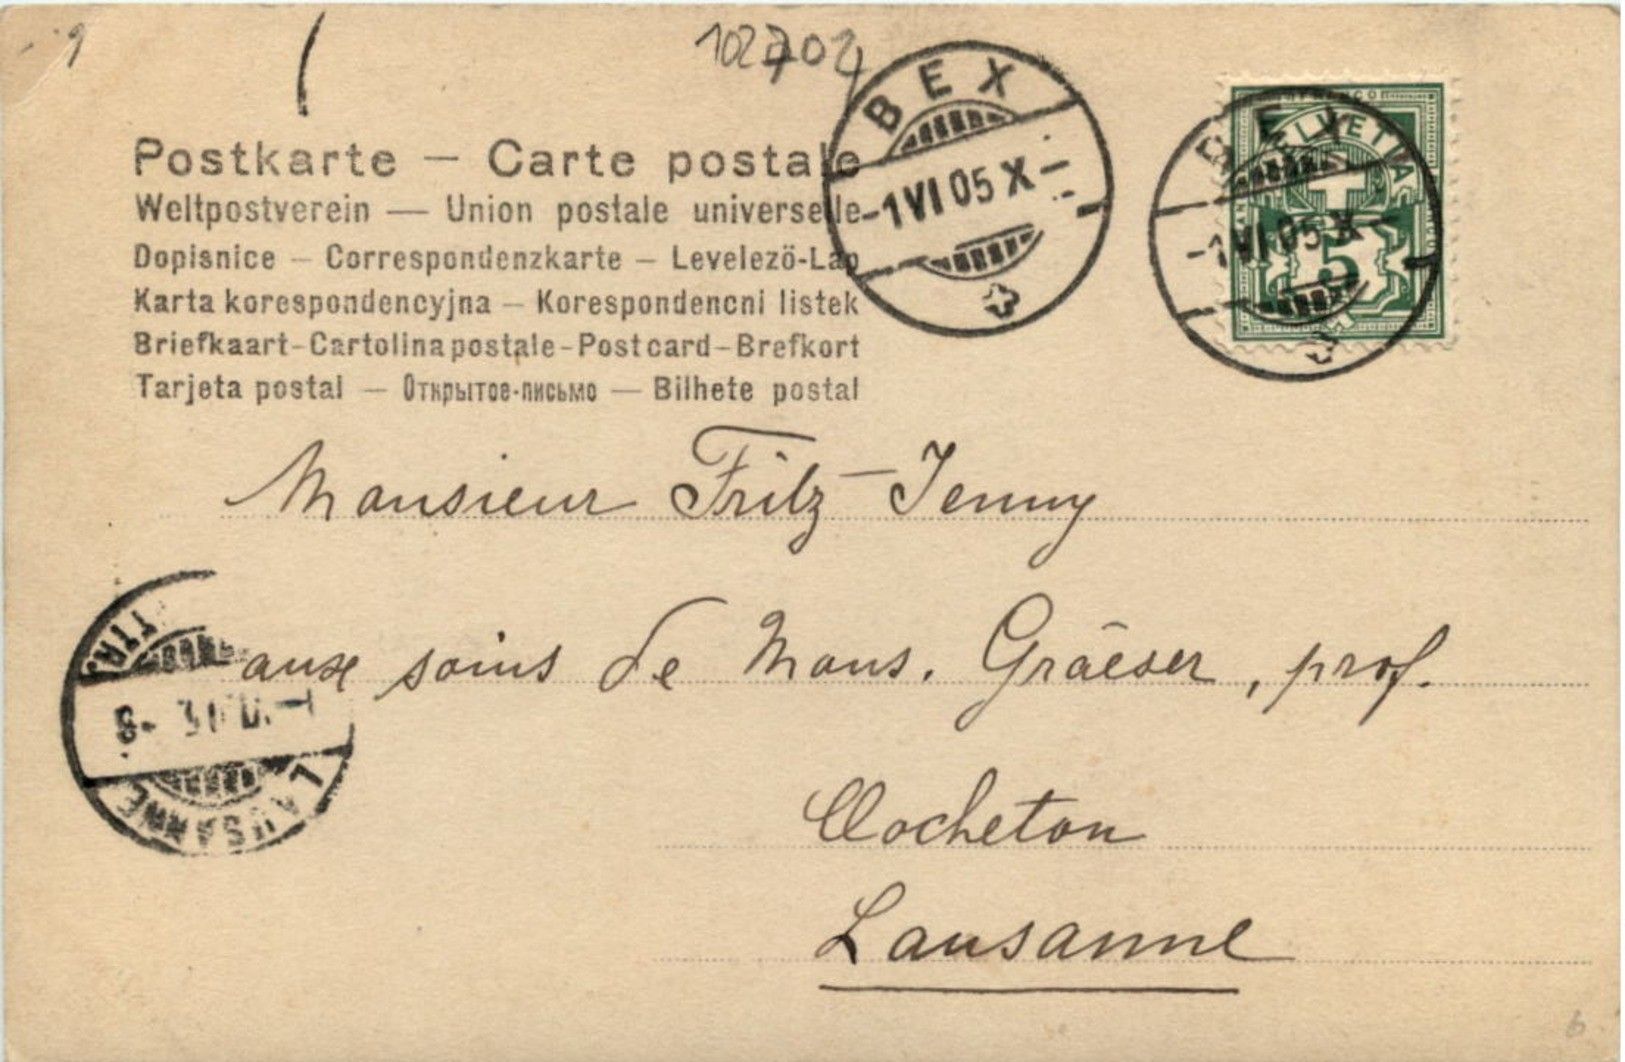 102702
BEX
-1 VI 05 X-
HELVETIA
5
BEX
-1 VI 05 X-
Postkarte — Carte postale
Weltpostverein — Union postale universelle
Dopisnice — Correspondenzkarte — Levelezö-Lap
Karta korespondencyjna — Korespondencni listek
Briefkaart-Cartolina postale-Post card-Brefkort
Tarjeta postal — Открытое-письмо — Bilhete postal
Monsieur Fritz-Jenny
aux soins de Mons. Gräeser, prof.
Clocheton
Lausanne
LAUSANNE